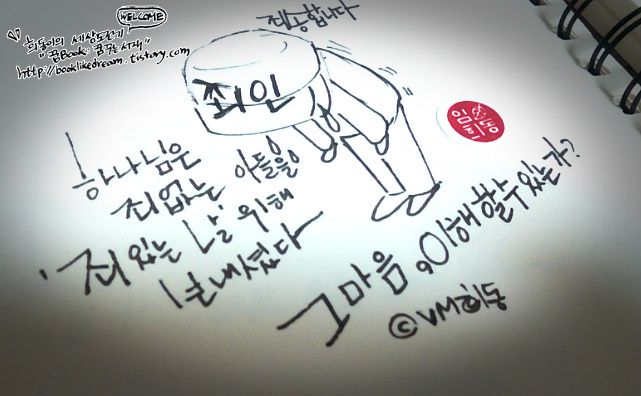 WELCOME
희동이의 세상도전기
"꿈Book: 꿈꾸는 서재"
http://booklikedream.tistory.com
죄송합니다
죄인
임희동
하나님은
죄없는 아들을
'죄있는 나'를 위해
보내셨다
그 마음, 이해할 수 있는가?
©VM희동